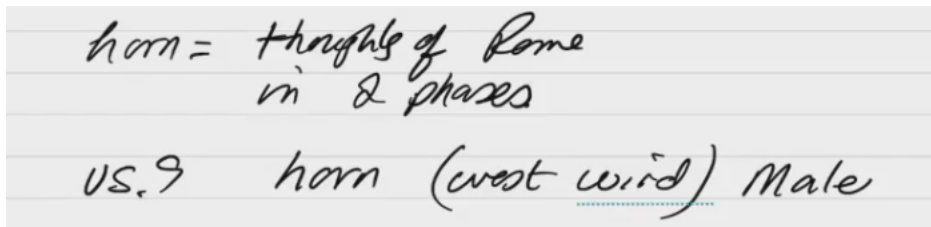 horn = thoughts of Rome
in 2 phases
vs. 9 horn (west wind) Male